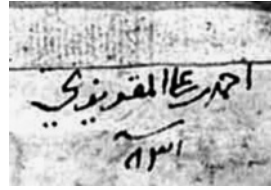 احمد بن على المقريزي
سنة ٨٣١